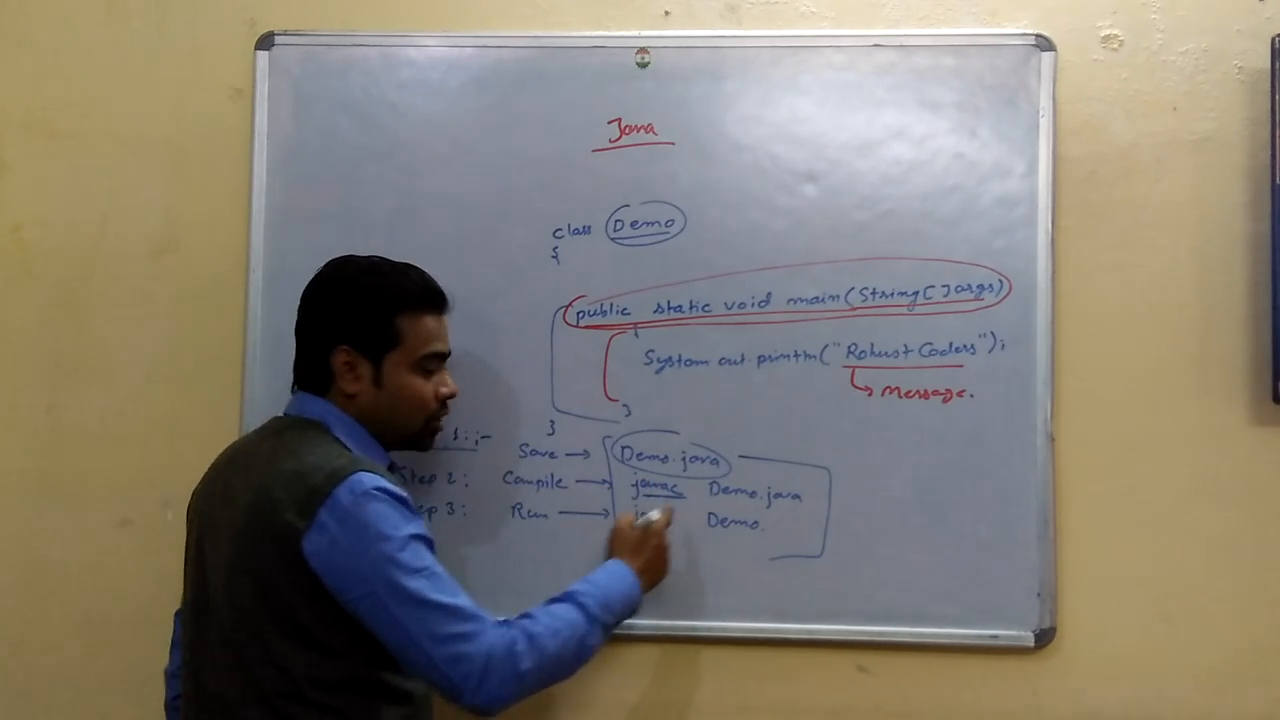 Java
class Demo
{
public static void main(String[]args)
{
System.out.println("Robust Coders");
Message.
}
}
1:- Save → Demo.java
Step 2: Compile → javac Demo.java
ep 3: Run → Demo.